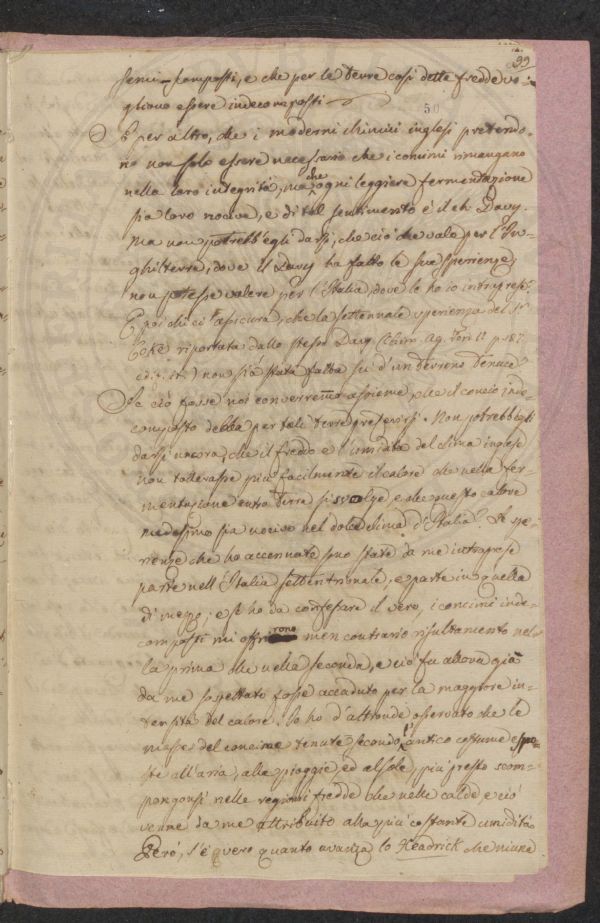 99
semi-scomposti, e che per le terre così dette fredde vo-
gliono essere indecomposti
50
È per altro, che i moderni chimici inglesi pretendo-
no non solo essere necessario che i concimi rimangano
nella loro integrità, ma che ogni leggiere fermentazione
sia loro nociva, e di tal sentimento è il ch. Davy.
Ma non potrebb'egli darsi, che ciò che vale per l'In-
ghilterra, dove il Davy ha fatto le sue sperienze,
non potesse valere per l'Italia, dove le ho io intraprese?
E poi chi ci assicura, che la settennale sperienza del Sr.
Coke riportata dallo stesso Davy (Chim. Ag. Tom. II p. 187
) non sia stata fatta su d'un terreno tenace?
Se ciò fosse noi converremmo assieme, che il concio inde-
composto debba per tali terre preferirsi. Non potrebb'egli
darsi ancora, che il freddo e l'umidità del clima inglese
non tollerasse più facilmente il calore che nella fer-
mentazione entro terra si svolge, e che questo calore
medesimo sia nocivo nel dolce clima d'Italia? Le spe-
rienze che ho accennate sono state da me intraprese
parte nell'Italia settentrionale, e parte in quella
di mezzo; e se ho da confessare il vero, i concimi inde-
composti mi offrirono men contrario risultamento nel-
la prima che nella seconda, e ciò fu allora già
da me sospettato fosse accaduto per la maggiore in-
tensità del calore. Io ho d'altronde osservato che le
masse del concime tenute secondo l'antico costume espo-
ste all'aria, alla pioggie, ed al sole, più presto scom-
pongonsi nelle regioni fredde che nelle calde, e ciò
venne da me attribuito alla più costante umidità.
Però, s'è vero quanto avanza lo Headrick che niuna